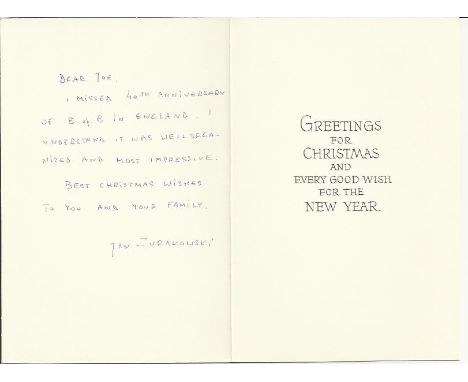 DEAR JOE,
I MISSED 40TH ANNIVERSARY
OF B of B IN ENGLAND. I
UNDERSTAND IT WAS WELL ORGA-
NIZED AND MOST IMPRESSIVE.
BEST CHRISTMAS WISHES
TO YOU AND YOUR FAMILY.
JAN ZURAKOWSKI
GREETINGS
FOR
CHRISTMAS
AND
EVERY GOOD WISH
FOR THE
NEW YEAR.